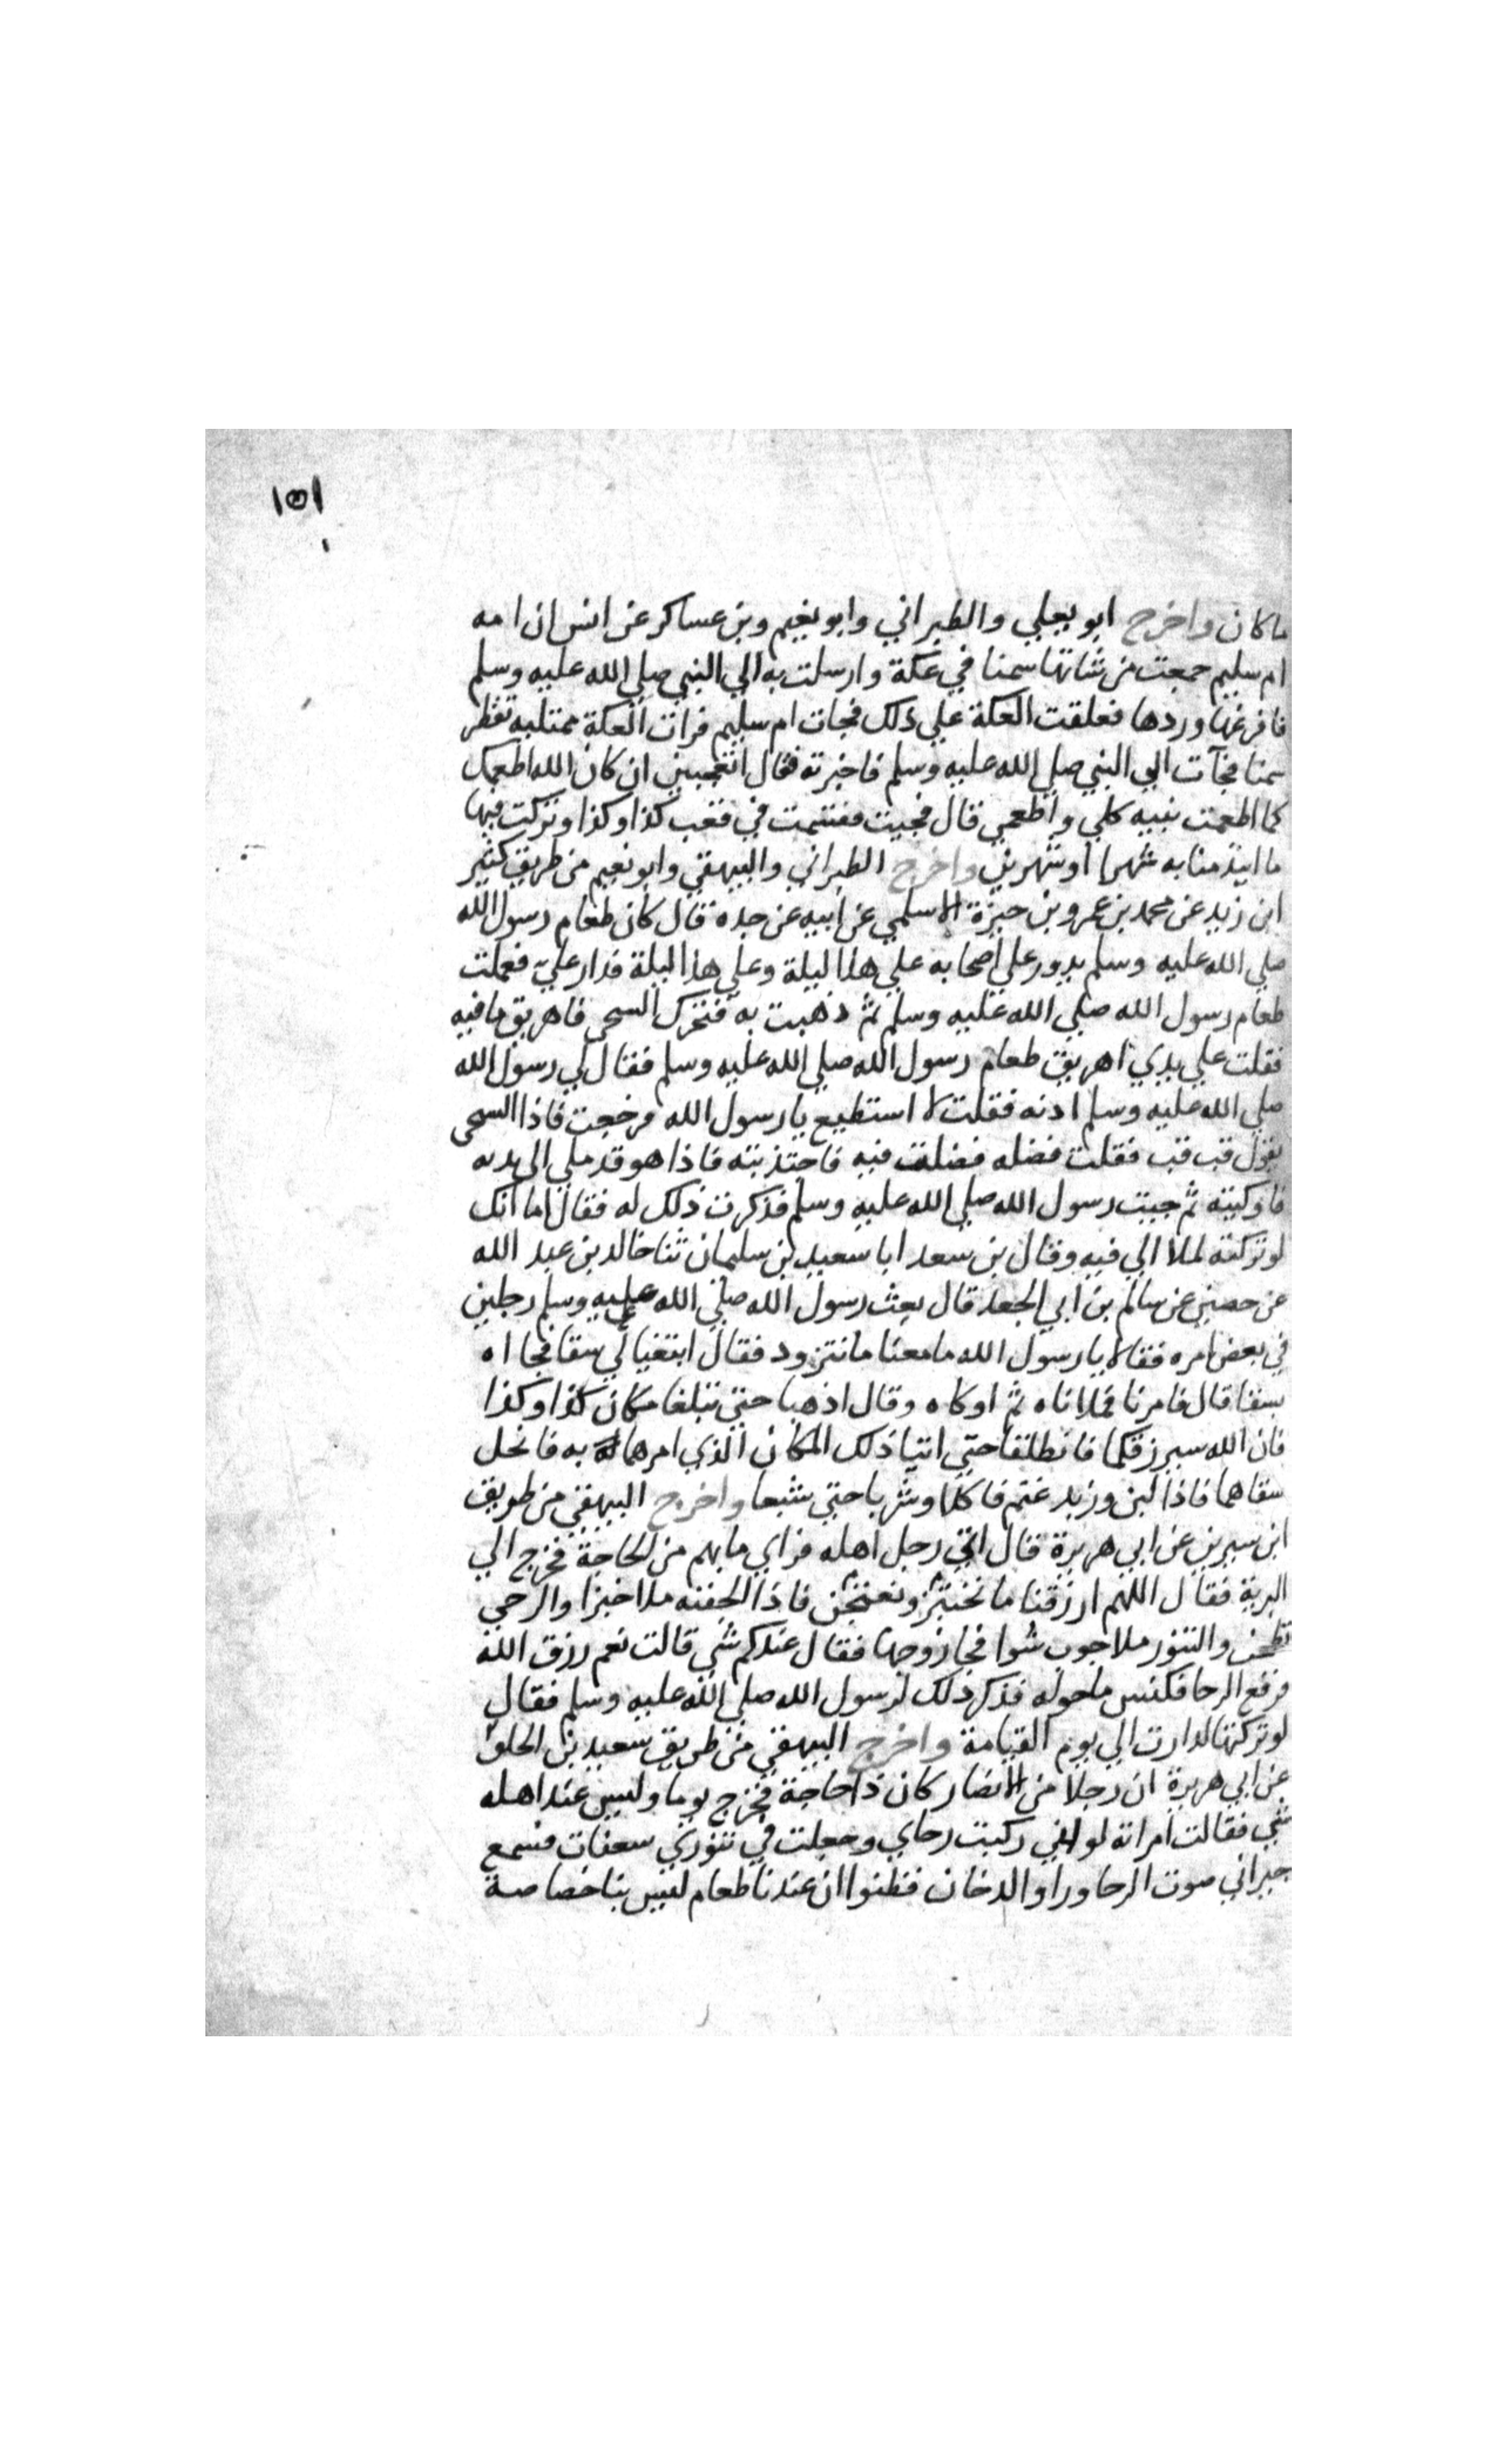 ١٥١
ما كان واخرج ابو يعلي والطبراني وابو نعيم وبن عساكر عن انس ان امه
ام سليم جمعت من شاتها سمنا في عكة وارسلت به الي النبي صلي الله عليه وسلم
فافرغها وردها فعلقت العكة علي ذلك فجات ام سليم فرات العكة ممتليه تقطر
سمنا فجآت الي النبي صلي الله عليه وسلم فاخبرته فقال اتعجبين ان كان الله اطعمك
كما اطعمت نبيه كلي واطعمي قال فجيت فقسمت في قعب كذا وكذا وتركت فيها
ما ايتدمنا به شهرا او شهرين واخرج الطبراني والبيهقي وابو نعيم من طريق كثير
ابن زيد عن محمد بن عمرو بن حمزة الاسلمي عن ابيه عن جده قال كان طعام رسول الله
صلي الله عليه وسلم يدور علي اصحابه علي هذا ليلة وعلي هذا ليلة فدار عليّ فعملت
طعام رسول الله صلي الله عليه وسلم ثم ذهبت به فتحرك السحي فاهريق ما فيه
فقلت علي يدي اهريق طعام رسول الله صلي الله عليه وسلم فقال لي رسول الله
صلي الله عليه وسلم ادنه فقلت لا استطيع يا رسول الله فرجعت فاذا السحي
يقول قب قب فقلت فضله فضلت فيه فاجتذبته فاذا هو قد ملي الي يديه
فاوكيته ثم جيت رسول الله صلي الله عليه وسلم فذكرت ذلك له فقال اما انك
لو تركته لملا الي فيه وقال بن سعد ابا سعيد بن سليمان ثنا خالد بن عبد الله
عن حصين عن سالم بن ابي الجعد قال بعث رسول الله صلي الله عليه وسلم رجلين
في بعض امره فقالا يا رسول الله ما معنا ما نتزود فقال ابتغيا لي سقا فجااه
بسقا قال فامرنا فملاناه ثم اوكاه وقال اذهبا حتي تبلغا مكان كذا وكذا
فان الله سيرزقكما فانطلقا حتي اتيا ذلك المكان الذي امرهما به فانحل
سقاهما فاذا لبن وزبد غنم فاكلا وشربا حتي شبعا واخرج البيهقي من طريق
ابن سيرين عن ابي هريرة قال اتي رجل اهله فراي ما بهم من الحاجة فخرج الي
البرية فقال اللهم ارزقنا ما نختبز ونعتجن فاذا الجفنه ملا خبزا والرحي
تطحن والتنور ملا جوب شوا فجا زوجها فقال عندكم شي قالت نعم رزق الله
فرفع الرحا فكنس ما حوله فذكر ذلك لرسول الله صلي الله عليه وسلم فقال
لو تركتها لدارت الي يوم القيامة واخرج البيهقي من طريق سعيد بن
عن ابي هريرة ان رجلا من الانصار كان ذا حاجة فخرج يوما وليس عند اهله
شي فقالت امراته لو اني ركبت رحاي وجعلت في تنوري سعفات فسمع
جيراني صوت الرحا وراوا الدخان فظنوا ان عندنا طعام ليس بنا خصاصة